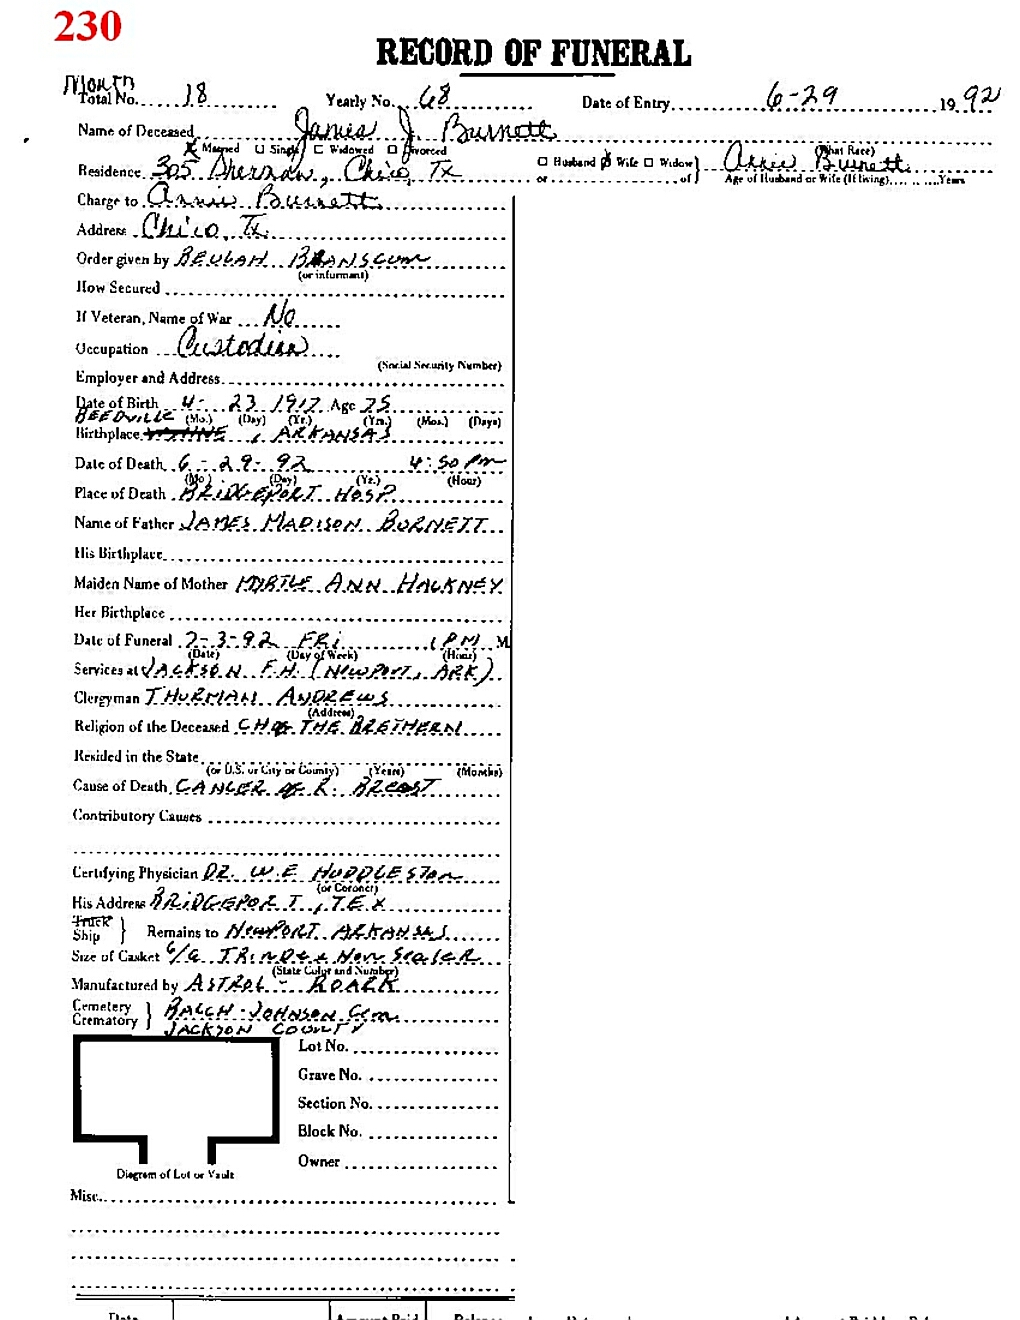 230
RECORD OF FUNERAL
Month
Total No. 18 Yearly No. 68 Date of Entry 6-29 19 92
Name of Deceased James J. Burnett
Married Single Widowed Divorced (What Race)
Residence 305 Sherman, Chico, Tx Husband Wife Widow or of Annie Burnett
Age of Husband or Wife (If living) Years
Charge to Annie Burnett
Address Chico, Tx.
Order given by BEULAH BRANSCUM
(or informant)
How Secured
If Veteran, Name of War No
Occupation Custodian
(Social Security Number)
Employer and Address
Date of Birth 4- 23 1917 Age 75
BEEDVILLE (Mo.) (Day) (Yr.) (Yrs.) (Mos.) (Days)
Birthplace , ARKANSAS
Date of Death 6-29-92 4:50 PM
(Mo.) (Day) (Yr.) (Hour)
Place of Death BRIDGEPORT HOSP.
Name of Father JAMES MADISON BURNETT
His Birthplace
Maiden Name of Mother MYRTLE ANN HACKNEY
Her Birthplace
Date of Funeral 7-3-92 FRI 1 PM M
(Date) (Day of Week) (Hour)
Services at JACKSON F.H. (NEWPORT, ARK)
Clergyman THURMAN ANDREWS
(Address)
Religion of the Deceased CH of THE BRETHERN
Resided in the State
(or U.S. or City or County) (Years) (Months)
Cause of Death CANCER of R. BREAST
Contributory Causes
Certifying Physician DR. W.E. HUDDLESTON
(or Coroner)
His Address BRIDGEPORT, TEX
Truck
Ship } Remains to NEWPORT ARKANSAS
Size of Casket 6/6 Non Sealer
(State Color and Number)
Manufactured by ASTRAL - ROARK
Cemetery
Crematory } BALCH-JOHNSON Cem.
JACKSON COUNTY
Lot No.
Grave No.
Section No.
Block No.
Owner
Diagram of Lot or Vault
Misc.
Date Amount Paid